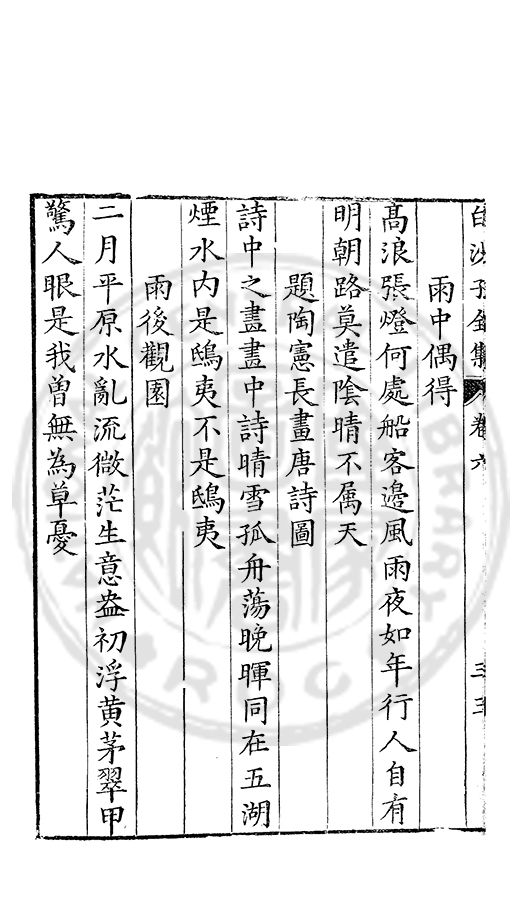 白沙子全集 卷六 三三
雨中偶得
高浪張燈何處船客邊風雨夜如年行人自有
明朝路莫遣陰晴不属天
題陶憲長畫唐詩圖
詩中之畫畫中詩晴雪孤舟蕩晚暉同在五湖
煙水内是鴟夷不是鴟夷
雨後觀園
二月平原水亂流微茫生意盎初浮黄茅翠甲
驚人眼是我曽無為草憂